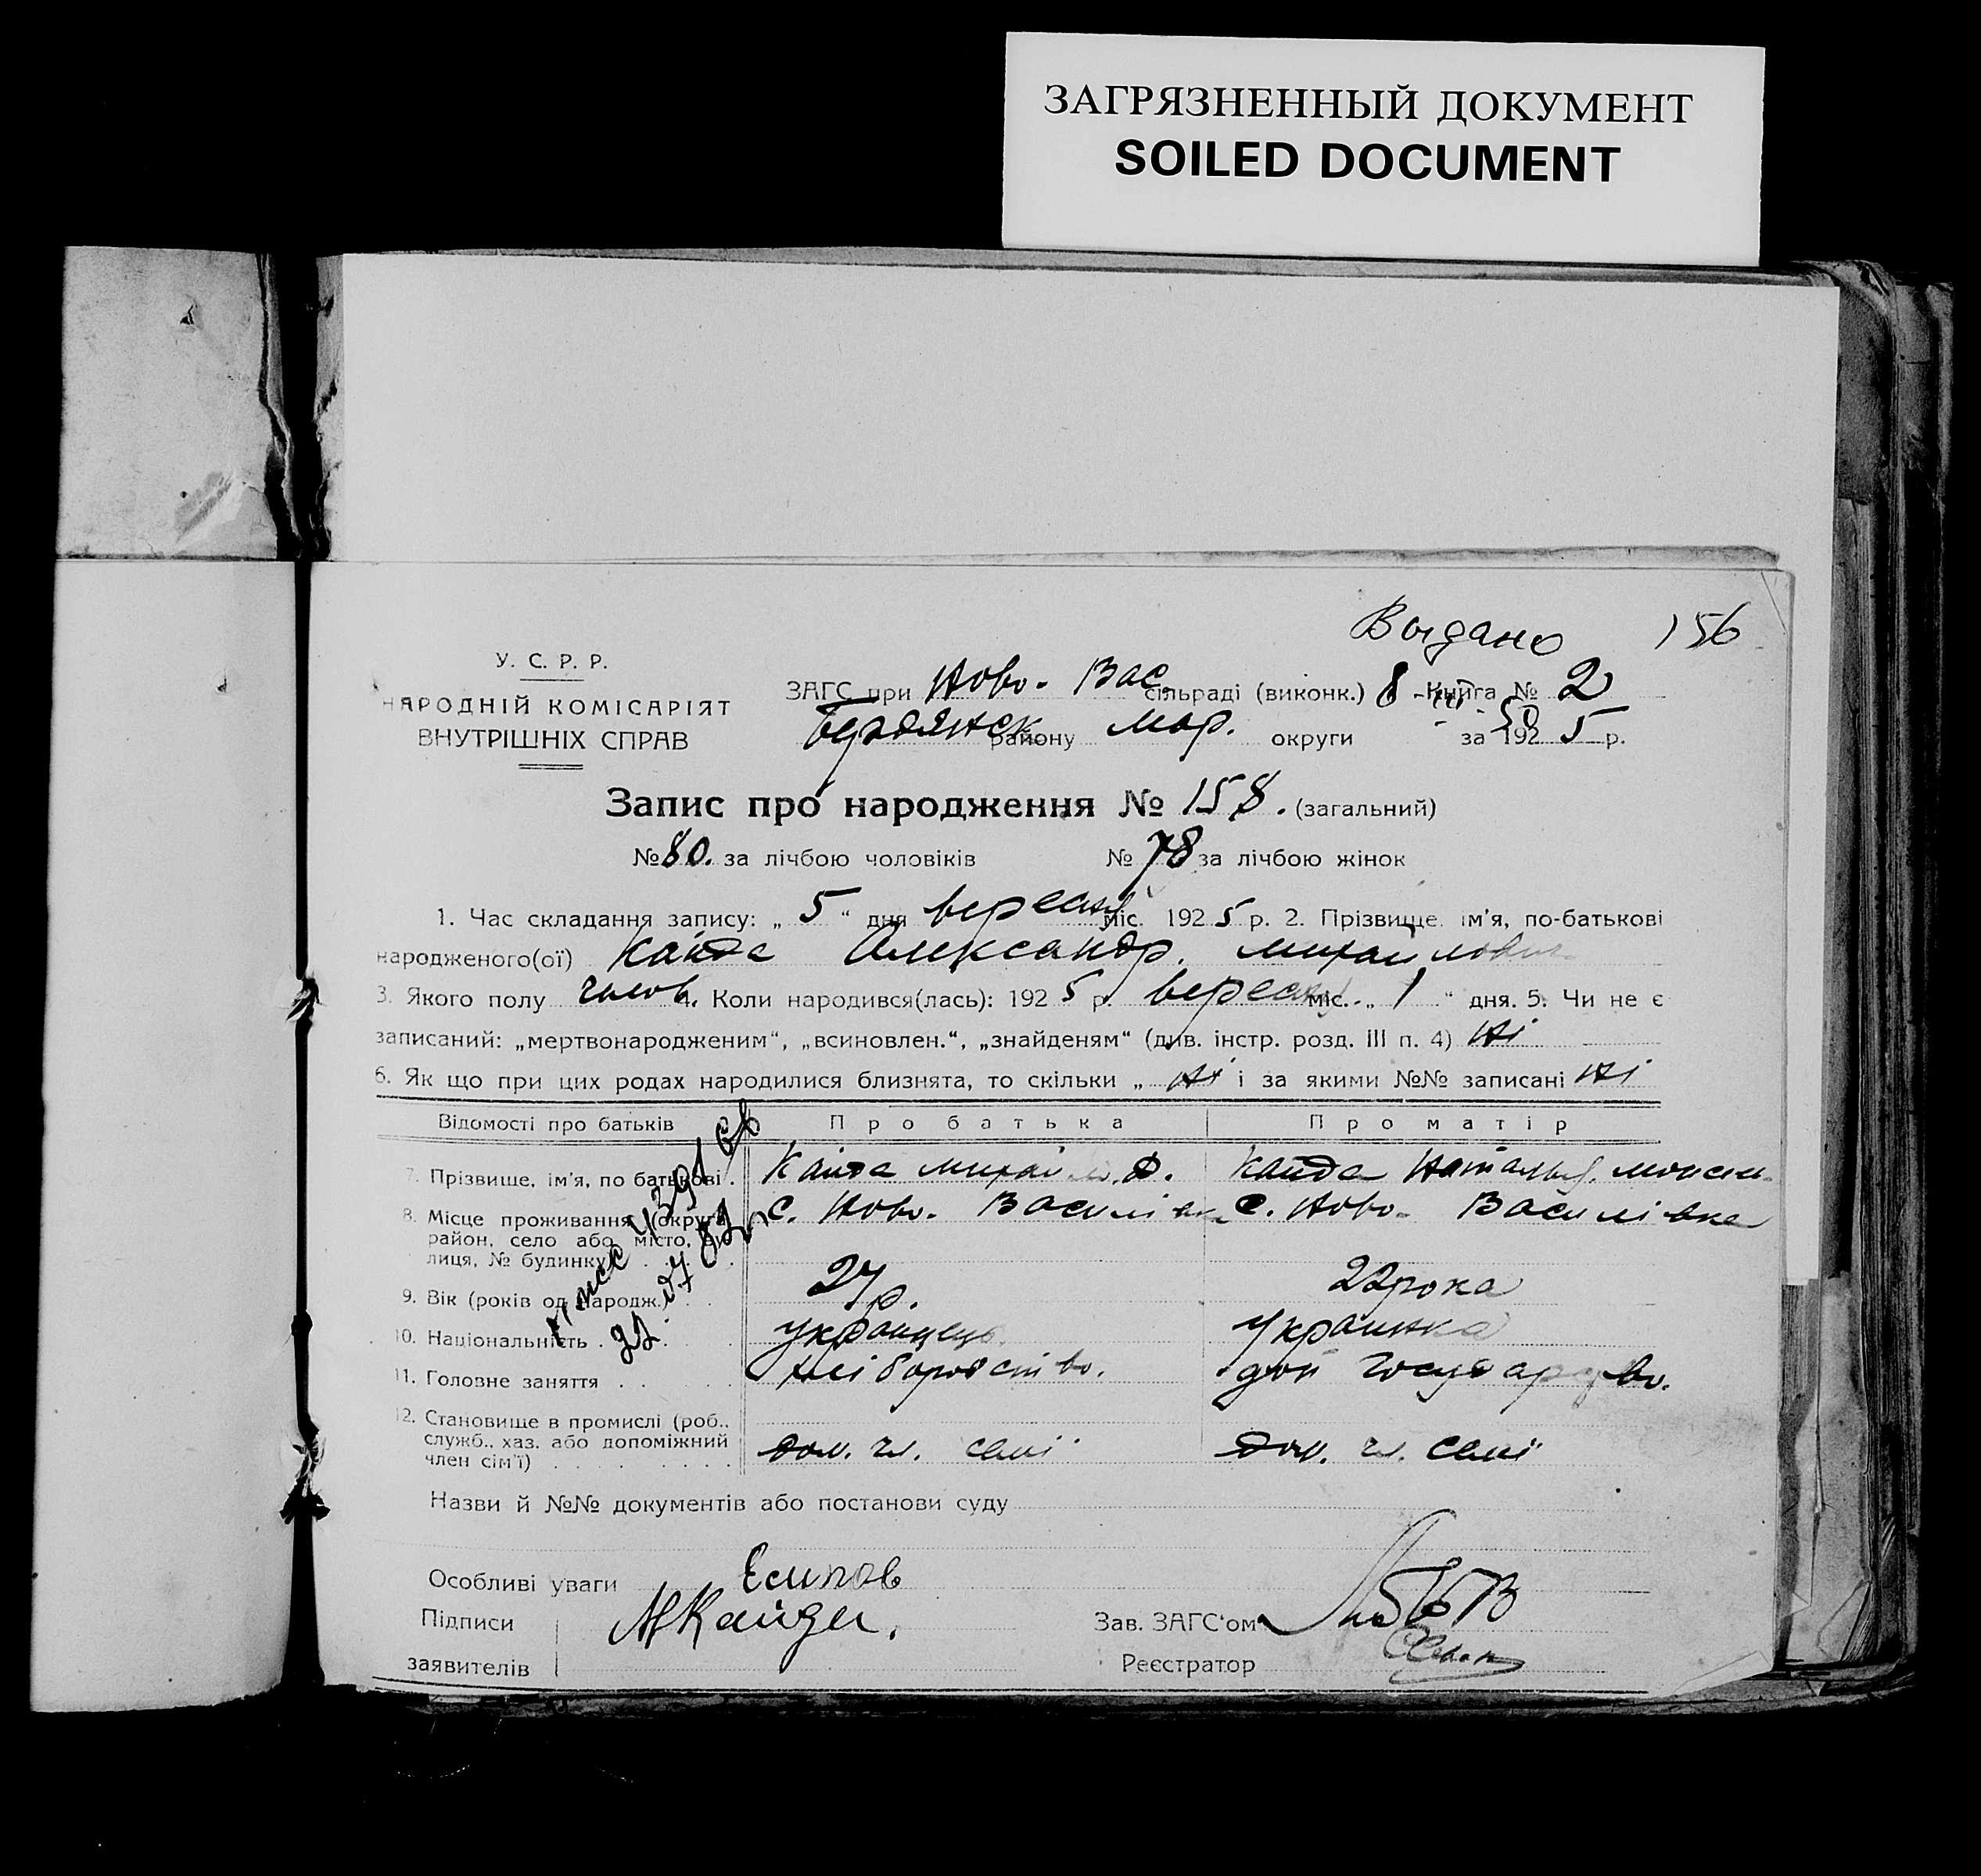 ЗАГРЯЗНЕННЫЙ ДОКУМЕНТ
SOILED DOCUMENT
Выдано 156
У. С. Р. Р.
НАРОДНІЙ КОМІСАРІЯТ
ВНУТРІШНІХ СПРАВ
ЗАГС при Ново- Вас. сільраді (виконк.) Книга № 2
Бердянск району Мар. округи за 1925 р.
Запис про народження № 158. (загальний)
№ 80. за лічбою чоловіків № 78 за лічбою жінок
1. Час складання запису: „ 5 “ дня вересня міс. 1925 р. 2. Прізвище ім'я, по-батькові
народженого(ої) Кайда Олександр.
3. Якого полу чолов. 4. Коли народився(лась): 1925 р. вересня міс. „ 1 “ дня. 5. Чи не є
записаний: „мертвонародженим“, „всиновлен.“, „знайденям“ (див. інстр. розд. III п. 4) ні
6. Як що при цих родах народилися близнята, то скільки „ ні і за якими №№ записані ні
Відомості про батьків Про батька Про матір
7. Прізвище, ім'я, по батькові . Кайда Михайл. Ф. Кайда
8. Місце проживання (округа, район, село або місто, вулиця, № будинку) с. Ново- Василівка с. Ново- Василівка
9. Вік (років од народж.) . . 27 р. 22 рока
10. Національність . . . українець українка
11. Головне заняття . . хліборобство. дом господарство.
12. Становище в промислі (роб., служб., хаз. або допоміжний член сім'ї) . . . дом. чл. семї дом. чл. семї
Назви й №№ документів або постанови суду
Особливі уваги Есипов
Підписи МКайда. Зав. ЗАГС'ом
заявителів Реєстратор